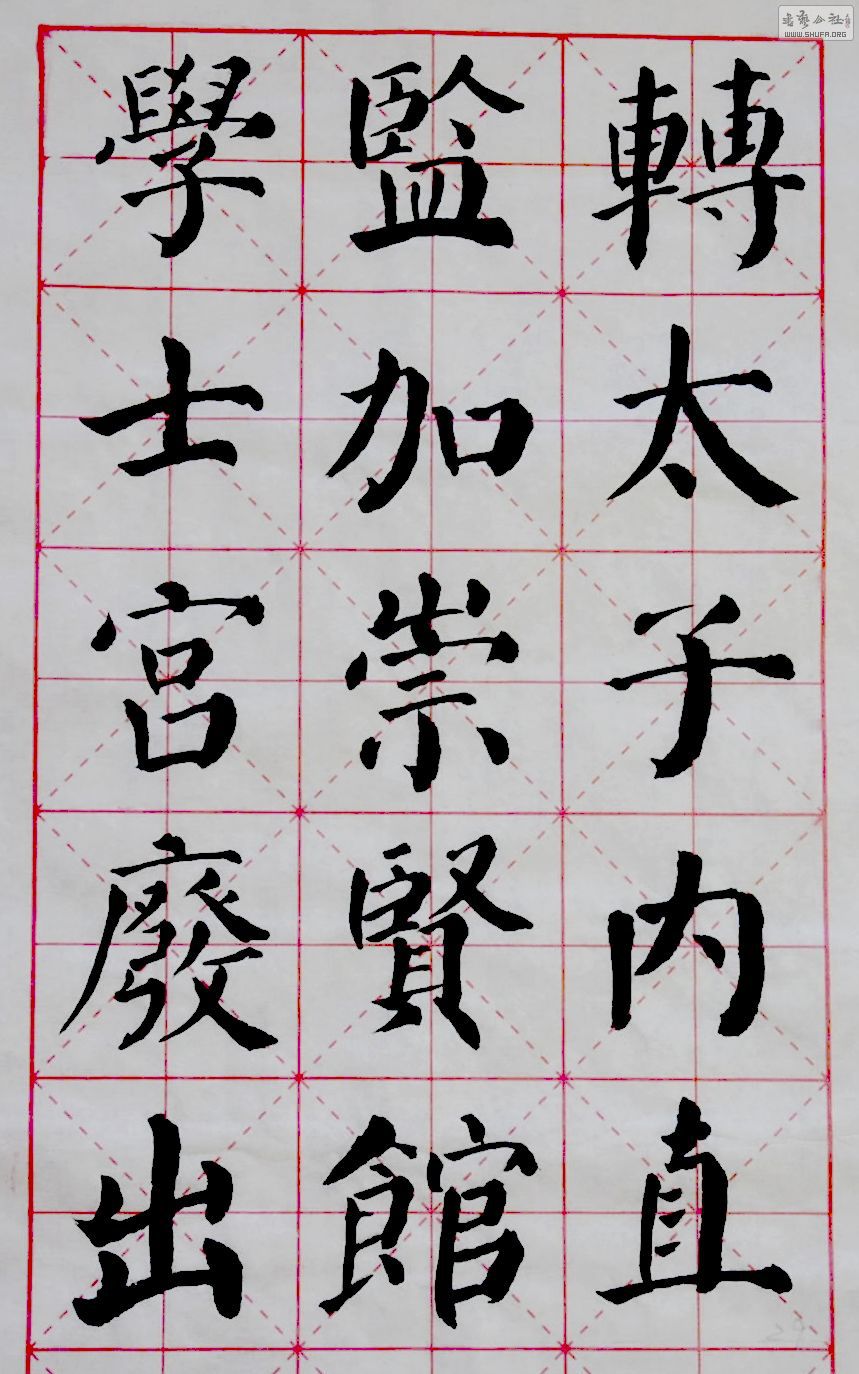 轉太子内直
監加崇賢館
學士宮廢出
書藝公社
WWW.SHUFA.ORG